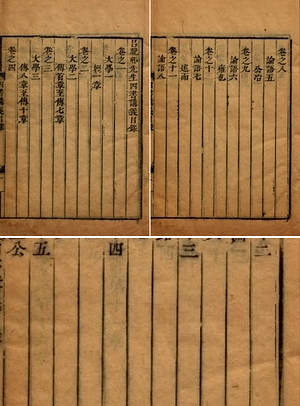 呂晚邨先生四書講義目錄
卷之一
大學一
經一章
卷之二
大學二
傳首章至傳七章
卷之三
大學三
傳八章至傳十章
卷之四
卷之八
論語五
公冶
卷之九
論語六
雍也
卷之十
論語七
述而
卷之十一
論語八
三
四
五
公